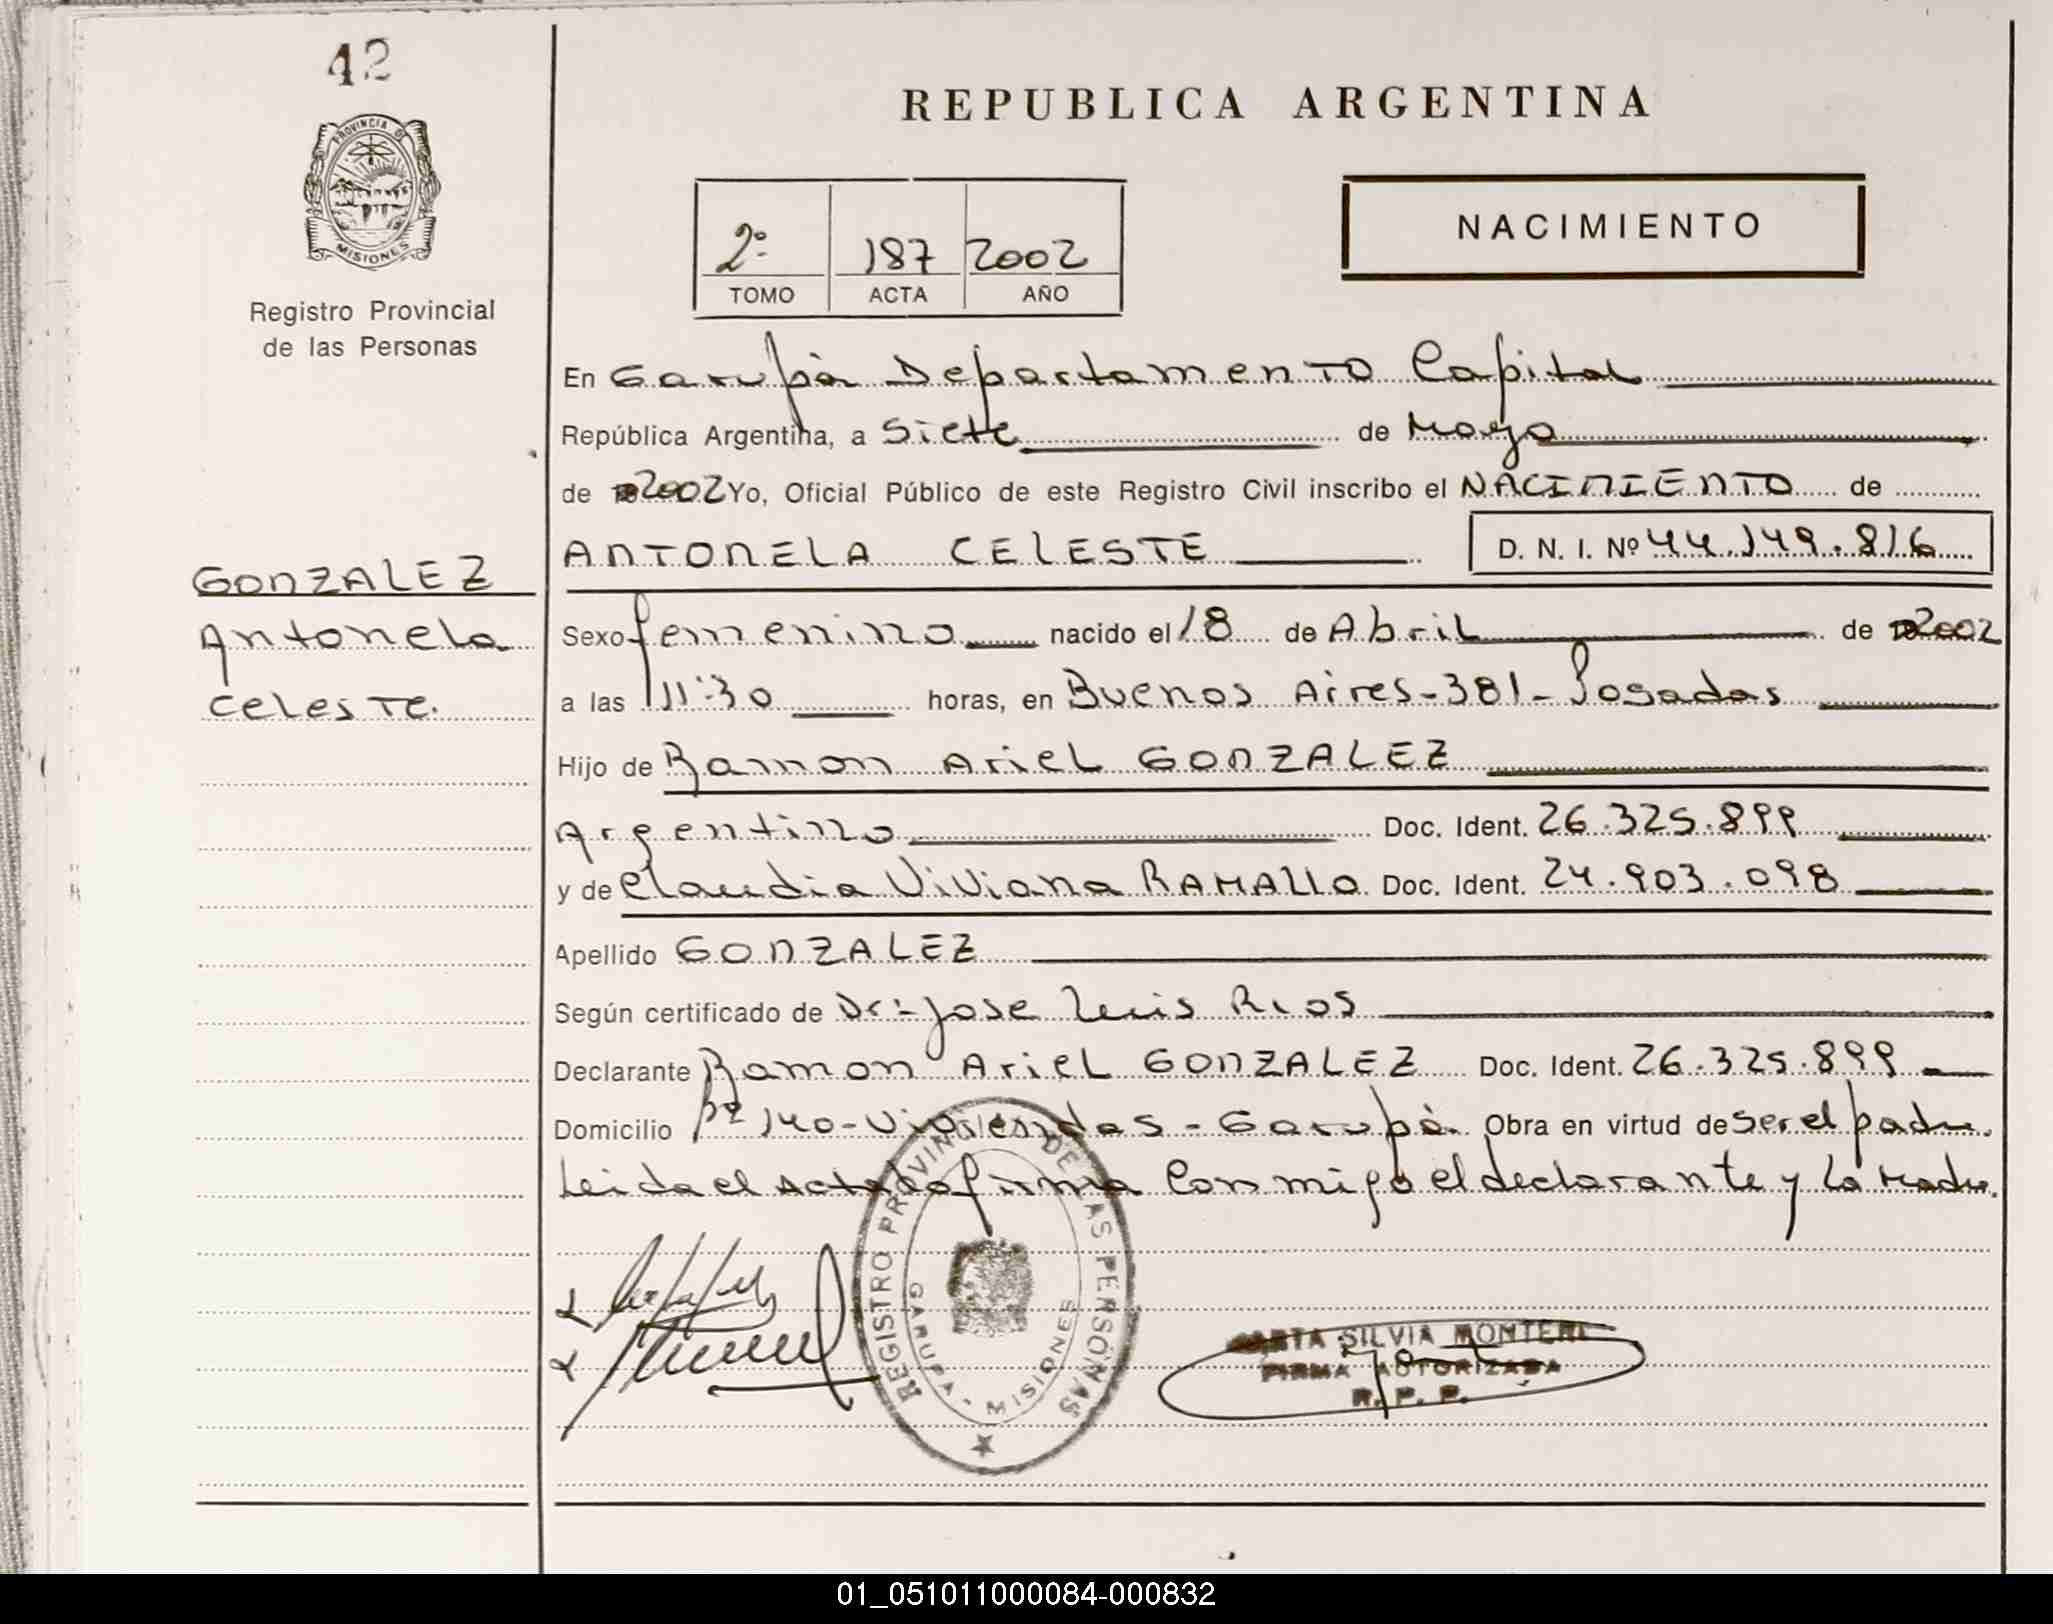 42
REPUBLICA ARGENTINA
PROVINCIA D
MISIONES
Registro Provincial
de las Personas
2º 187 2002
TOMO ACTA AÑO
NACIMIENTO
En Garupà Departamento Capital
República Argentina, a Siete de Mayo
de 2002 Yo, Oficial Público de este Registro Civil inscribo el NACIMIENTO de
ANTONELA CELESTE D. N. I. Nº 44.149.816
GONZALEZ
Antonela
Celeste.
Sexo femenino nacido el 18 de Abril de 2002
a las 11:30 horas, en Buenos Aires-381-Posadas
Hijo de Ramon Ariel GONZALEZ
Argentino Doc. Ident. 26.325.899
y de Claudia Viviana RAMALLO Doc. Ident. 24.903.098
Apellido GONZALEZ
Según certificado de Dr:-Jose Luis Rios
Declarante Ramon Ariel GONZALEZ Doc. Ident. 26.325.899
Domicilio 140-Viviendas-Garupà Obra en virtud de ser el padre.
Leida el Acta la firma Conmigo el declarante y La Madre.
REGISTRO PROVINCIAL DE LAS PERSONAS
GARUPA - MISIONES
SILVIA
FIRMA AUTORIZADA
R. P. P.
01_051011000084-000832